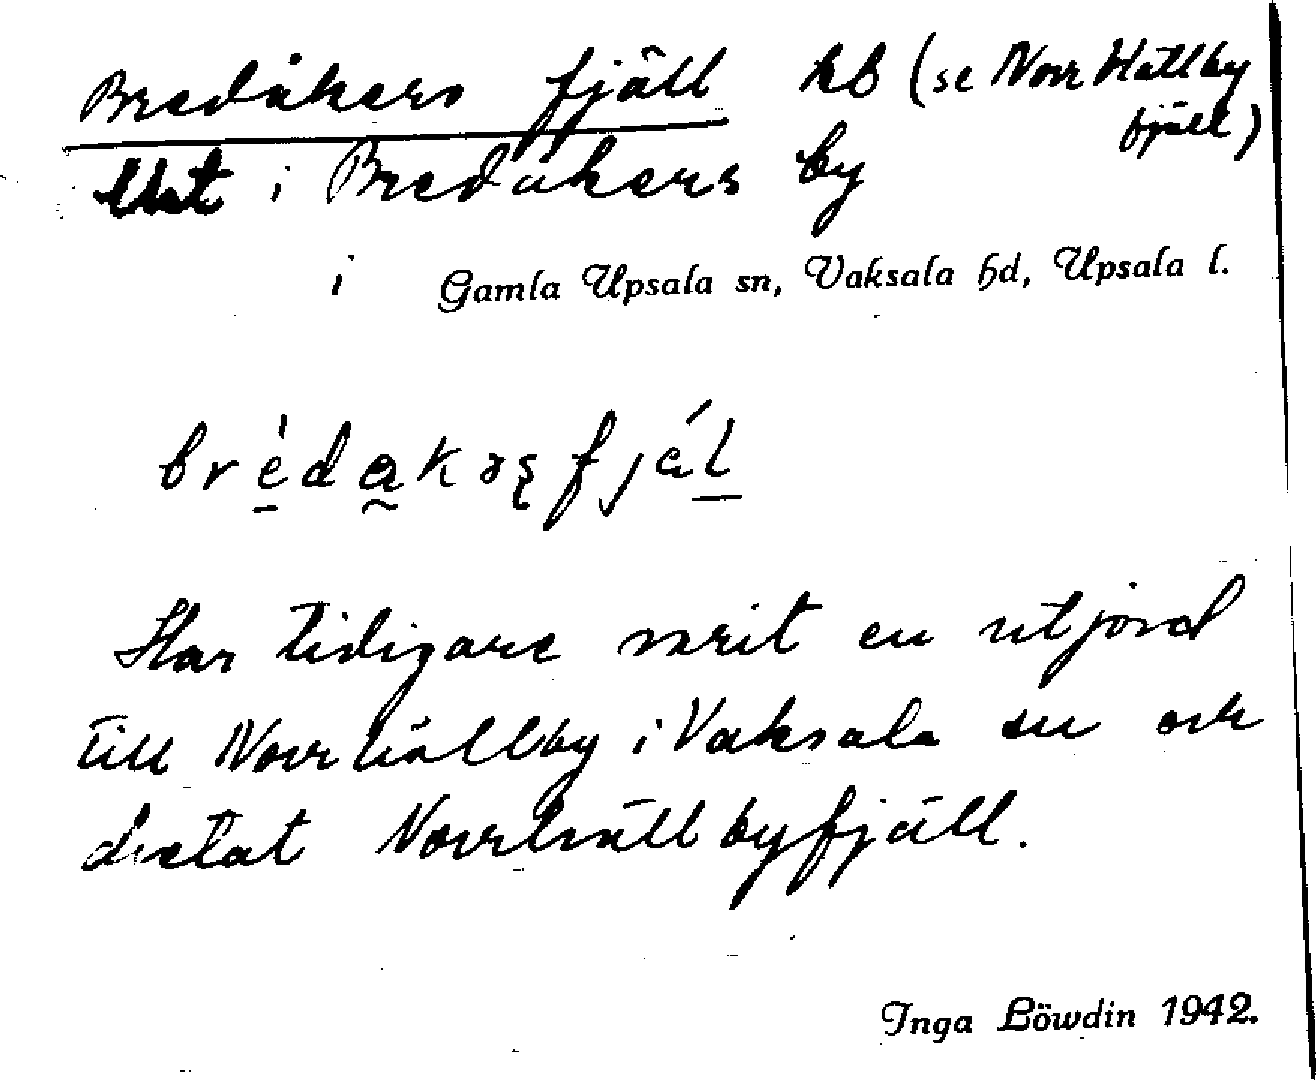 Bredåkers fjäll kb (se Norr Hällby
fjäll)
i Bredåkers by
i Gamla Upsala sn, Vaksala hd, Upsala l.
brèdakəʂfjäʹl
Har tidigare varit en utjord
till Norrhällby i Vaksala sn och
hetat Norrhällbyfjäll.
Inga Löwdin 1942.